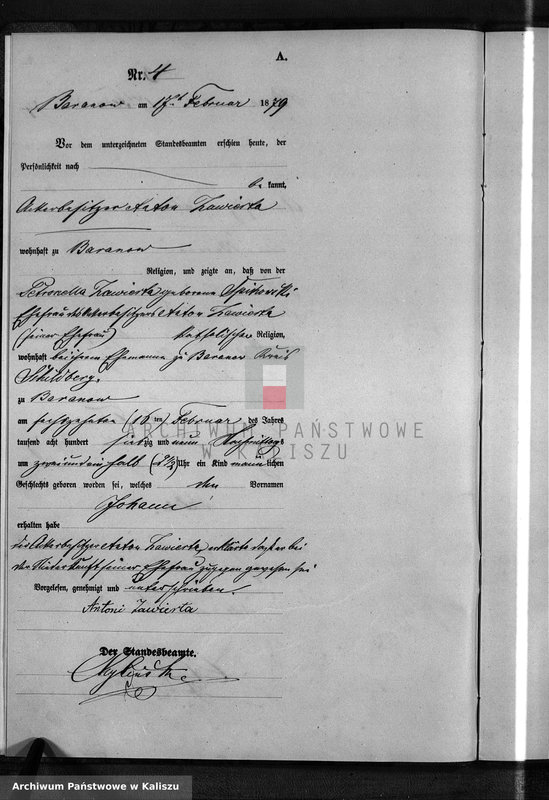 A.
Nr. 4
Baranow am 17ten Februar 1879
Vor dem unterzeichneten Standesbeamten erschien heute, der
Persönlichkeit nach
bekannt,
Ackerbesitzer Anton Zawierta
wohnhaft zu Baranow
Religion, und zeigte an, daß von der
Petronella Zawierta geborene
Ehefrau des Ackerbesitzers Anton Zawierta
(seiner Ehefrau) katholischer Religion,
wohnhaft bei ihrem Ehemanne zu Baranow Kreis
Schildberg,
zu Baranow
am sechszehnten (16ten) Februar des Jahres
tausend acht hundert siebzig und neun Nachmittags
um zwei und ein halb (2 1/2) Uhr ein Kind männlichen
Geschlechts geboren worden sei, welches den Vornamen
Johann
erhalten habe
der Ackerbesitzer Anton Zawierta, erklärte daß er bei
der Niederkunft seiner Ehefrau zugegen gewesen sei
Vorgelesen, genehmigt und unterschrieben.
Antoni Zawierta
Der Standesbeamte.
ARCHIWUM PAŃSTWOWE
W KALISZU
Archiwum Państwowe w Kaliszu